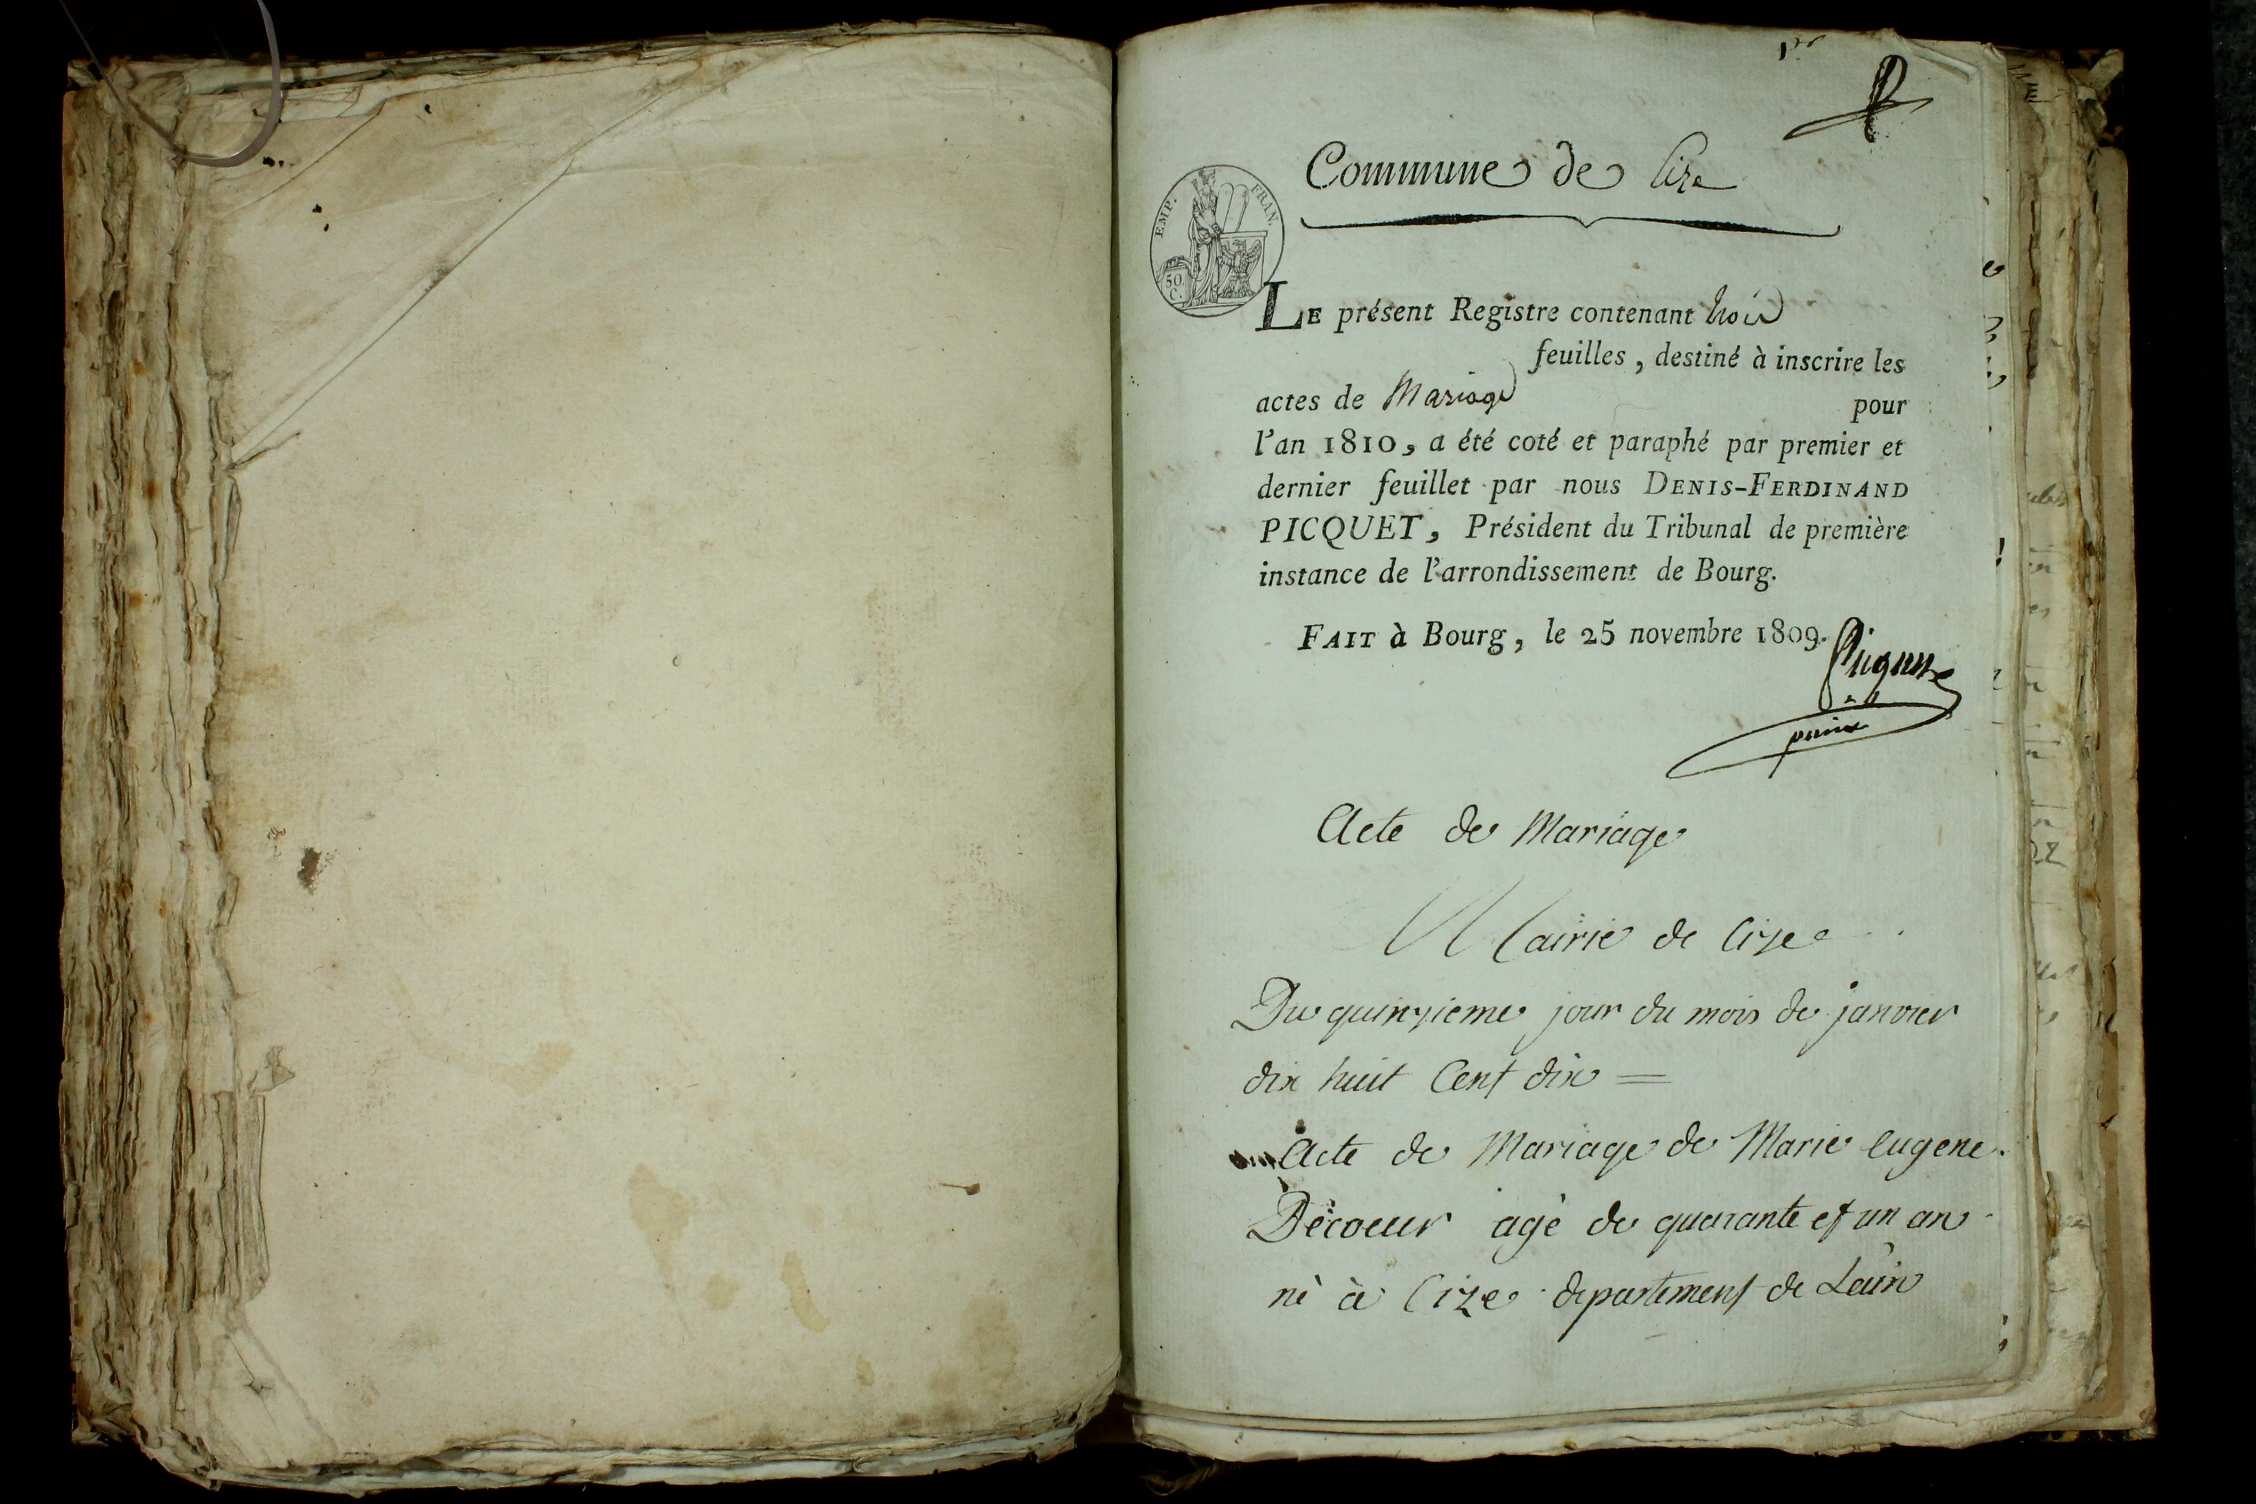 1er
Commune de Cize
EMP. FRAN.
50 C.
LE présent Registre contenant trois
feuilles, destiné à inscrire les
actes de Mariage pour
l'an 1810, a été coté et paraphé par premier et
dernier feuillet par nous DENIS-FERDINAND
PICQUET, Président du Tribunal de première
instance de l'arrondissement de Bourg.
FAIT à Bourg, le 25 novembre 1809.
Picquet
Acte de Mariage
Mairie de Cize
Du quinzieme jour du mois de janvier
dix huit Cent dix =
Acte de Mariage de Marie eugene
Décoeur agé de quarante et un an
né à Cize departement de Lain